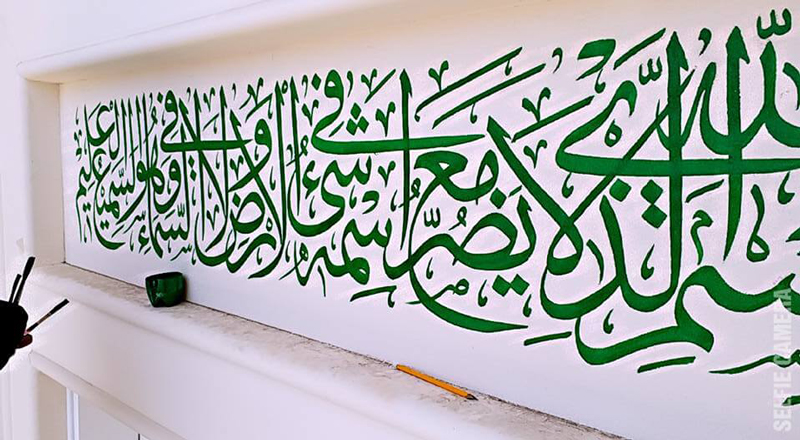 بسم الله الذي لا يضر مع اسمه شيء في الأرض ولا في السماء وهو السميع العليم
SELFIE CAMERA